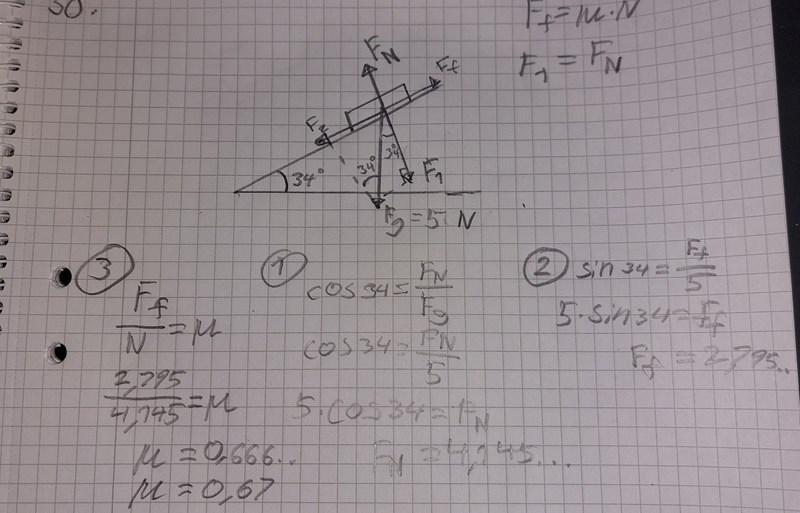 30.
F_f = μ·N
F_1 = F_N
F_N
F_f
F_2
34°
34°
34°
F_1
F_g = 5 N
③
F_f / N = μ
2,795 / 4,145 = μ
μ = 0,666..
μ = 0,67
①
cos34 = F_N / F_g
cos34 = F_N / 5
5·cos34 = F_N
F_N = 4,145...
②
sin34 = F_f / 5
5·sin34 = F_f
F_f = 2,795..